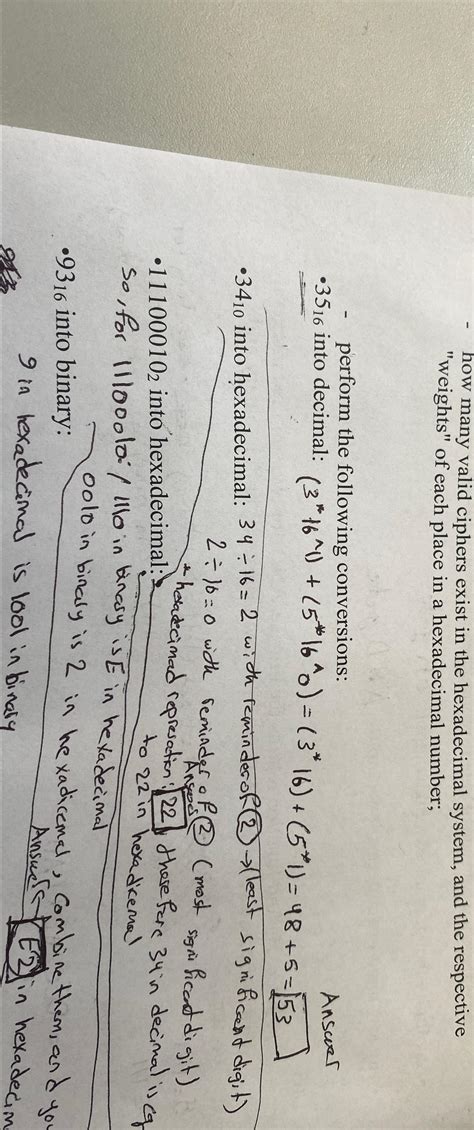 - how many valid ciphers exist in the hexadecimal system, and the respective
"weights" of each place in a hexadecimal number;
- perform the following conversions:
•35₁₆ into decimal: (3*16^1) + (5*16^0) = (3*16) + (5*1) = 48 + 5 = 53
Answer
•34₁₀ into hexadecimal: 34 ÷ 16 = 2 with reminder of 2 → (least significant digit)
2 ÷ 16 = 0 with reminder of 2 (most significant digit)
Answer
* hexadecimal represation: 22, therefore 34 in decimal is eq
to 22 in hexadicemal
•11100010₂ into hexadecimal:
So, for 11100010: / 1110 in binary is E in hexadecimal
0010 in binary is 2 in hexadicemal, Combine them, and you
Answer E2 in hexadecim
•93₁₆ into binary:
9 in hexadecimal is 1001 in binary